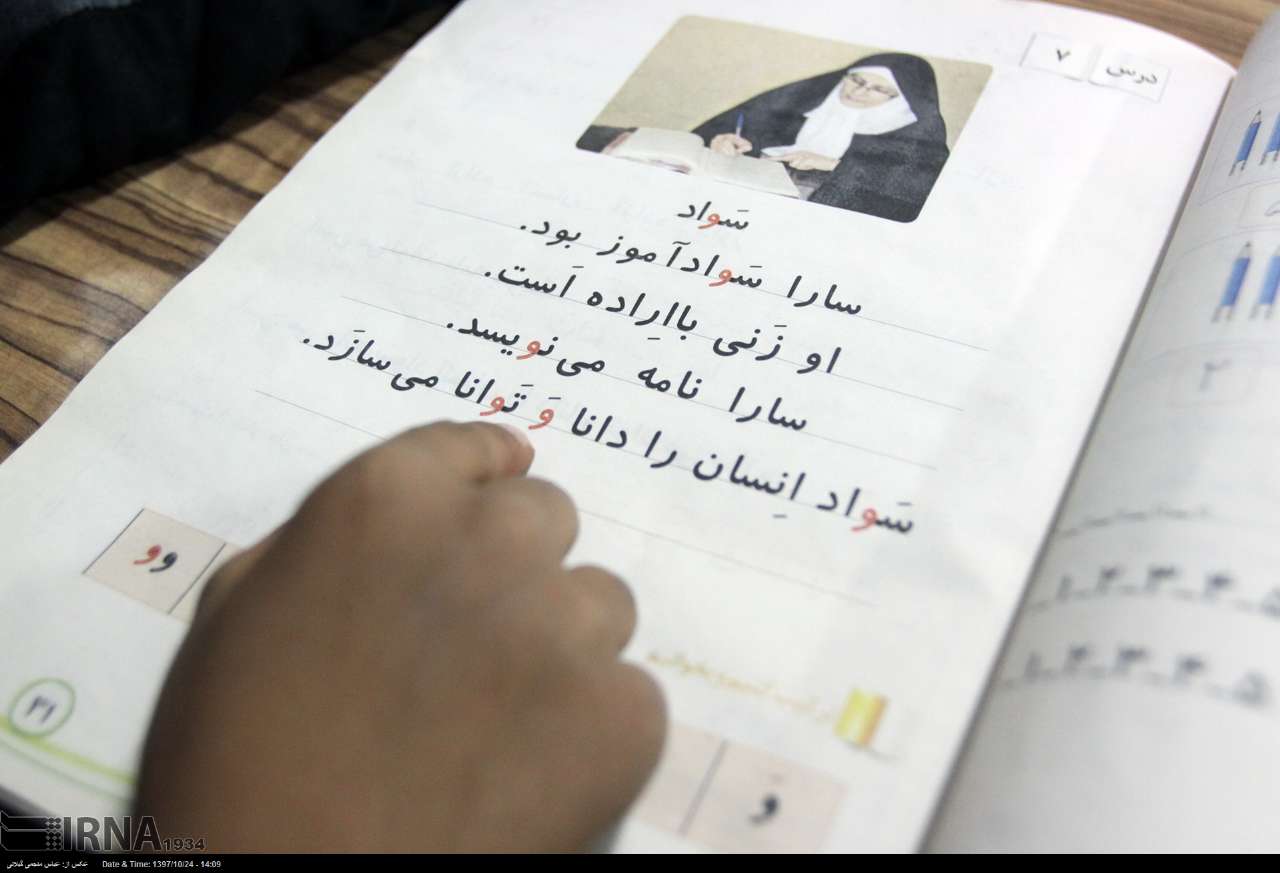 درس ۷
سَواد
سارا سَوادآموز بود.
او زَنی بااِراده اَست.
سارا نامه می‌نویسد.
سَواد اِنسان را دانا وَ تَوانا می‌سازَد.
و و
وَ
۲۱
۱ ۲ ۳ ۴ ۵
۱ ۲ ۳ ۴ ۵
IRNA 1934
عکس از: عباس منجمی گیلانی
Date & Time: 1397/10/24 - 14:09